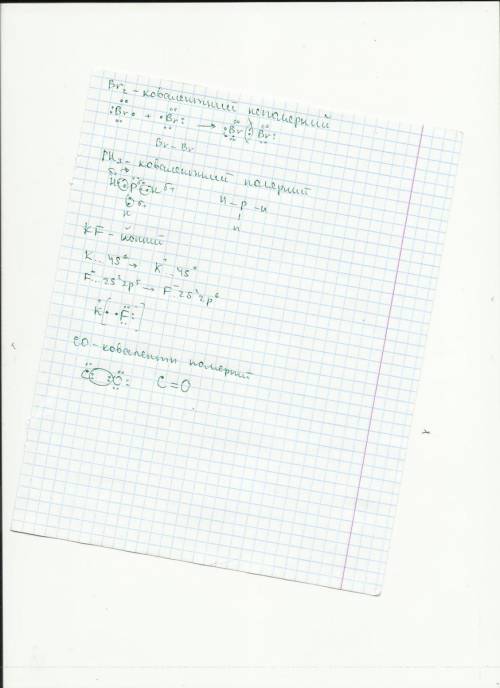 Br₂ - ковалентний неполярний
:Br• + •Br: → :Br : Br:
Br - Br
PH₃ - ковалентний полярний
H : P : H δ+
H δ+
H - P - H
H
KF - йонний
K..4s¹ → K⁺..4s⁰
F..2s²2p⁵ → F⁻..2s²2p⁶
K⁺[:F:]⁻
CO - ковалентн полярний
C::O: C=O